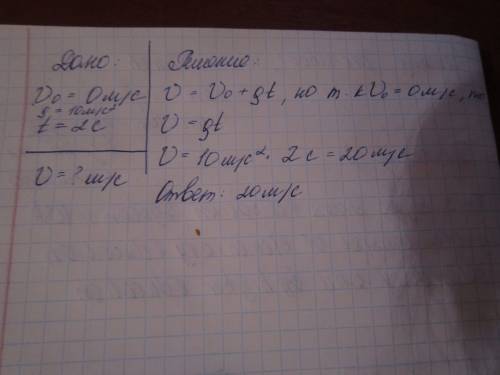 Дано:
V₀ = 0 м/с
g = 10 м/с²
t = 2 с
V = ? м/с
Решение:
V = V₀ + gt, но т.к V₀ = 0 м/с, то
V = gt
V = 10 м/с² · 2 с = 20 м/с
Ответ: 20 м/с